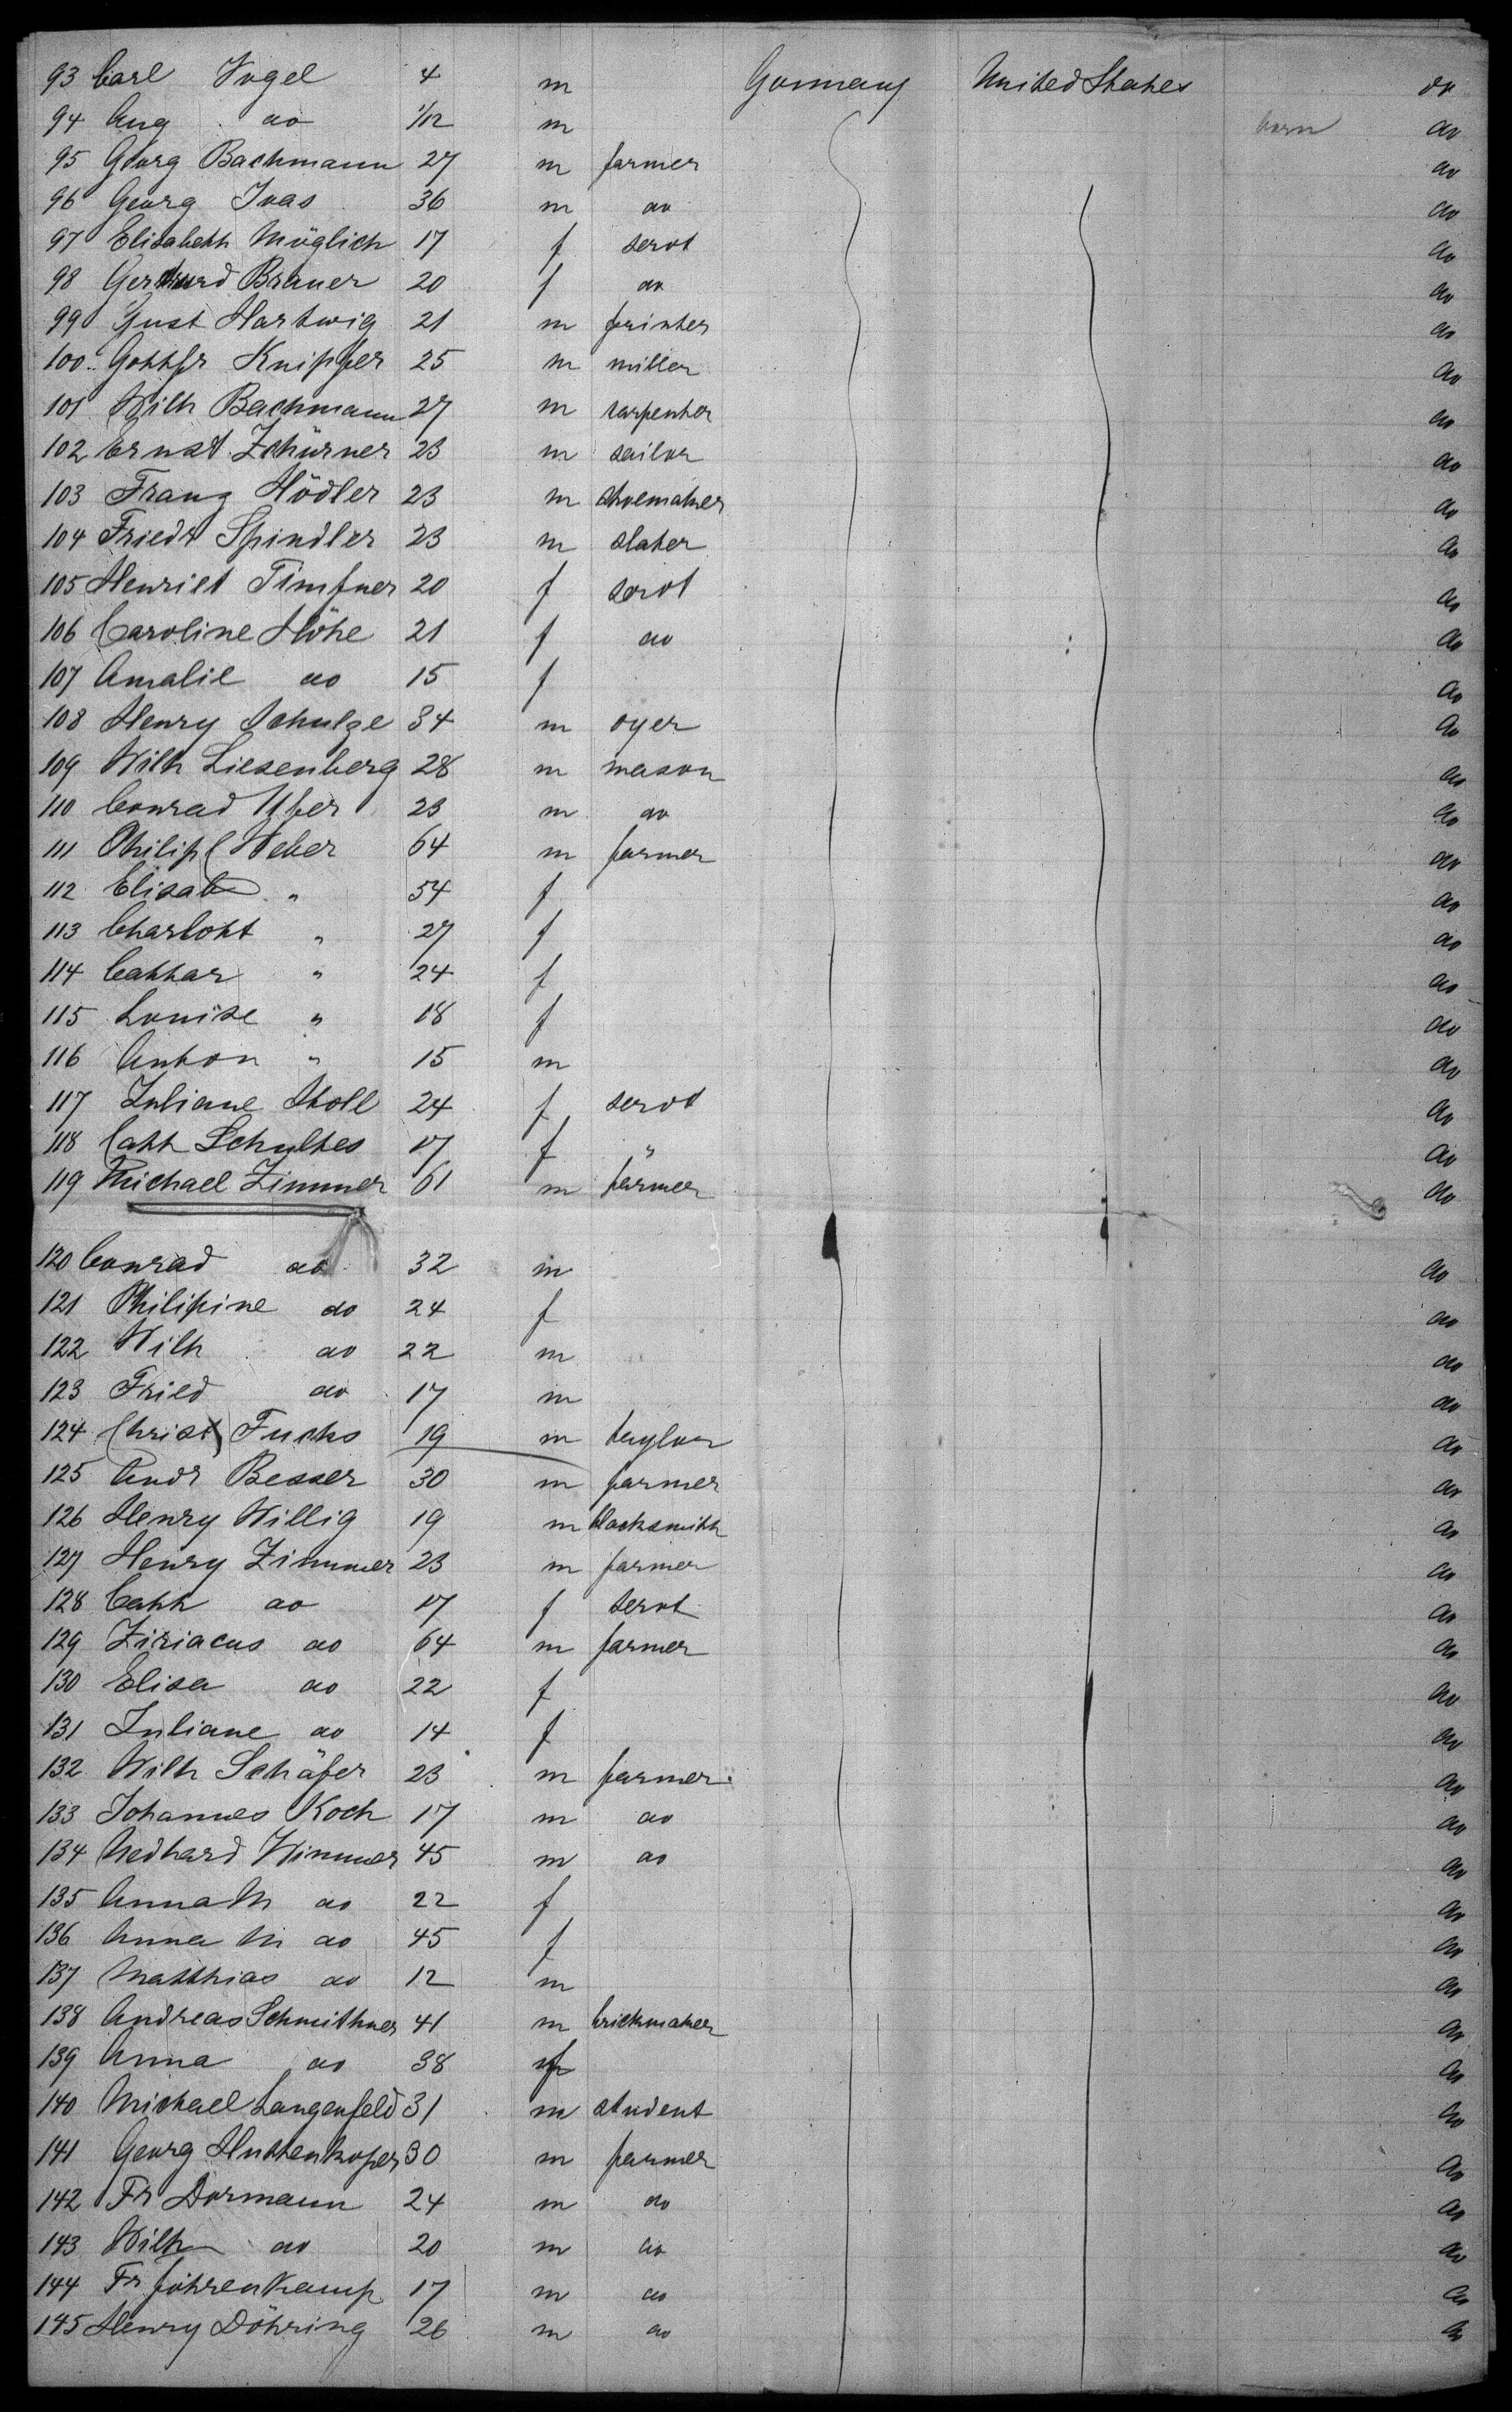 93 Carl Vogel 4 m Germany United States do
94 Aug do 1/12 m born do
95 Georg Bachmann 27 m farmer do
96 Georg Ivas 36 m do do
97 Elisabeth Möglich 17 f servt do
98 Gertrurd Brauer 20 f do do
99 Gust Hartwig 21 m printer do
100 Gottfr Knipfer 25 m miller do
101 Wilh Bachmann 27 m carpenter do
102 Ernst Zchürner 23 m sailor do
103 Franz Hödler 23 m shoemaker do
104 Friedr Spindler 23 m slater do
105 Henriet Timfner 20 f servt do
106 Caroline Höhe 21 f do do
107 Amalie do 15 f do
108 Henry Schulze 34 m oyer do
109 Wilh Liesenberg 28 m mason do
110 Conrad Ufer 23 m do do
111 Philip Weber 64 m farmer do
112 Elisab " 54 f do
113 Charlott " 27 f do
114 Cathar " 24 f do
115 Louise " 18 f do
116 Anton " 15 m do
117 Juliane Stoll 24 f servt do
118 Cath Schultes 17 f " do
119 Michael Zimmer 61 m farmer do
120 Conrad do 32 m do
121 Philipine do 24 f do
122 Wilh do 22 m do
123 Fried do 17 m do
124 Christ Fuchs 19 m taylor do
125 Andr Besser 30 m farmer do
126 Henry Willig 19 m blacksmith do
127 Henry Zimmer 23 m farmer do
128 Cath do 17 f servt do
129 Ziriacus do 64 m farmer do
130 Elisa do 22 f do
131 Juliane do 14 f do
132 Wilh Schäfer 23 m farmer do
133 Johannes Koch 17 m do do
134 Medhard Wimmer 45 m do do
135 Anna M do 22 f do
136 Anna M do 45 f do
137 Matthias do 12 m do
138 Andreas Schmithner 41 m brickmaker do
139 Anna do 38 f do
140 Michael Langenfeld 31 m student do
141 Georg Huttenkofer 30 m farmer do
142 Fr Dormann 24 m do do
143 Wilh do 20 m do do
144 Fr Föhrenkamp 17 m do do
145 Henry Döhring 26 m do do